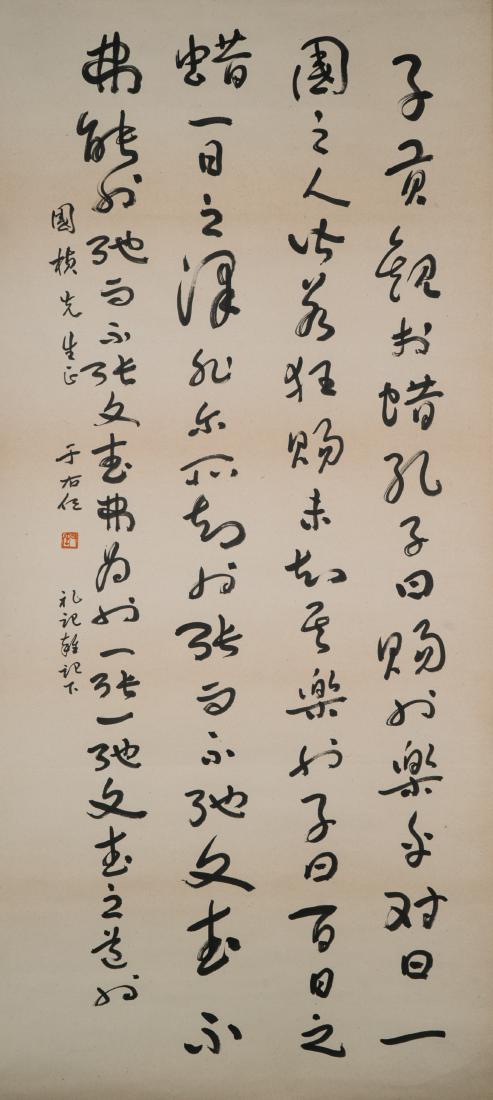 子貢觀於蜡孔子曰賜也樂乎对曰一
國之人皆若狂賜未知其樂也子曰百日之
蜡一日之澤非尔所知也張而不弛文武不
弗能也弛而不張文武弗為也一張一弛文武之道也
國楨先生正 于右任 礼記雜記下